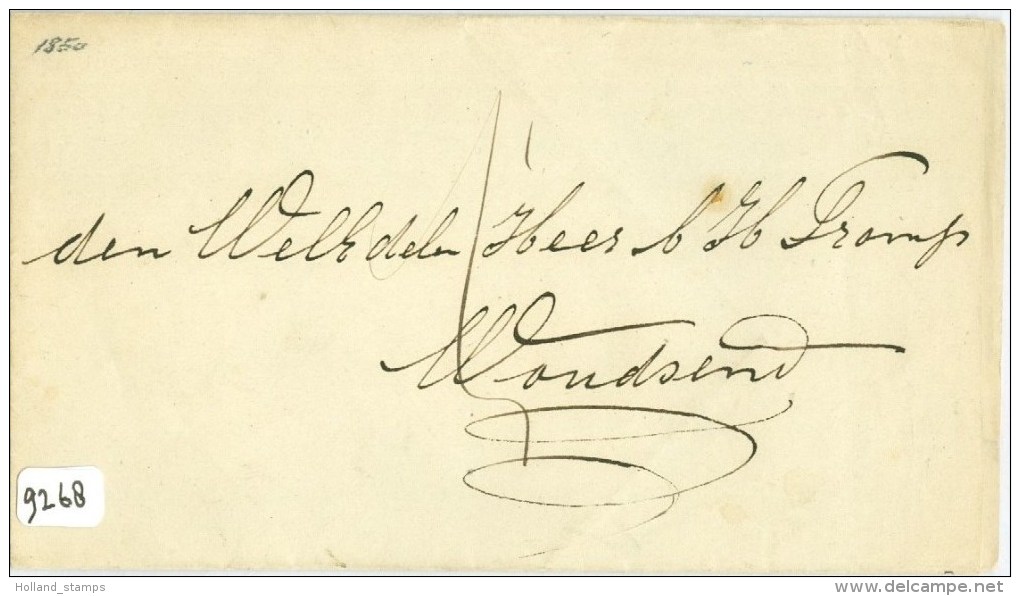 1850
den WelEdelen Heer b H Tromp
Woudsend
9268
Holland_stamps
www.delcampe.net